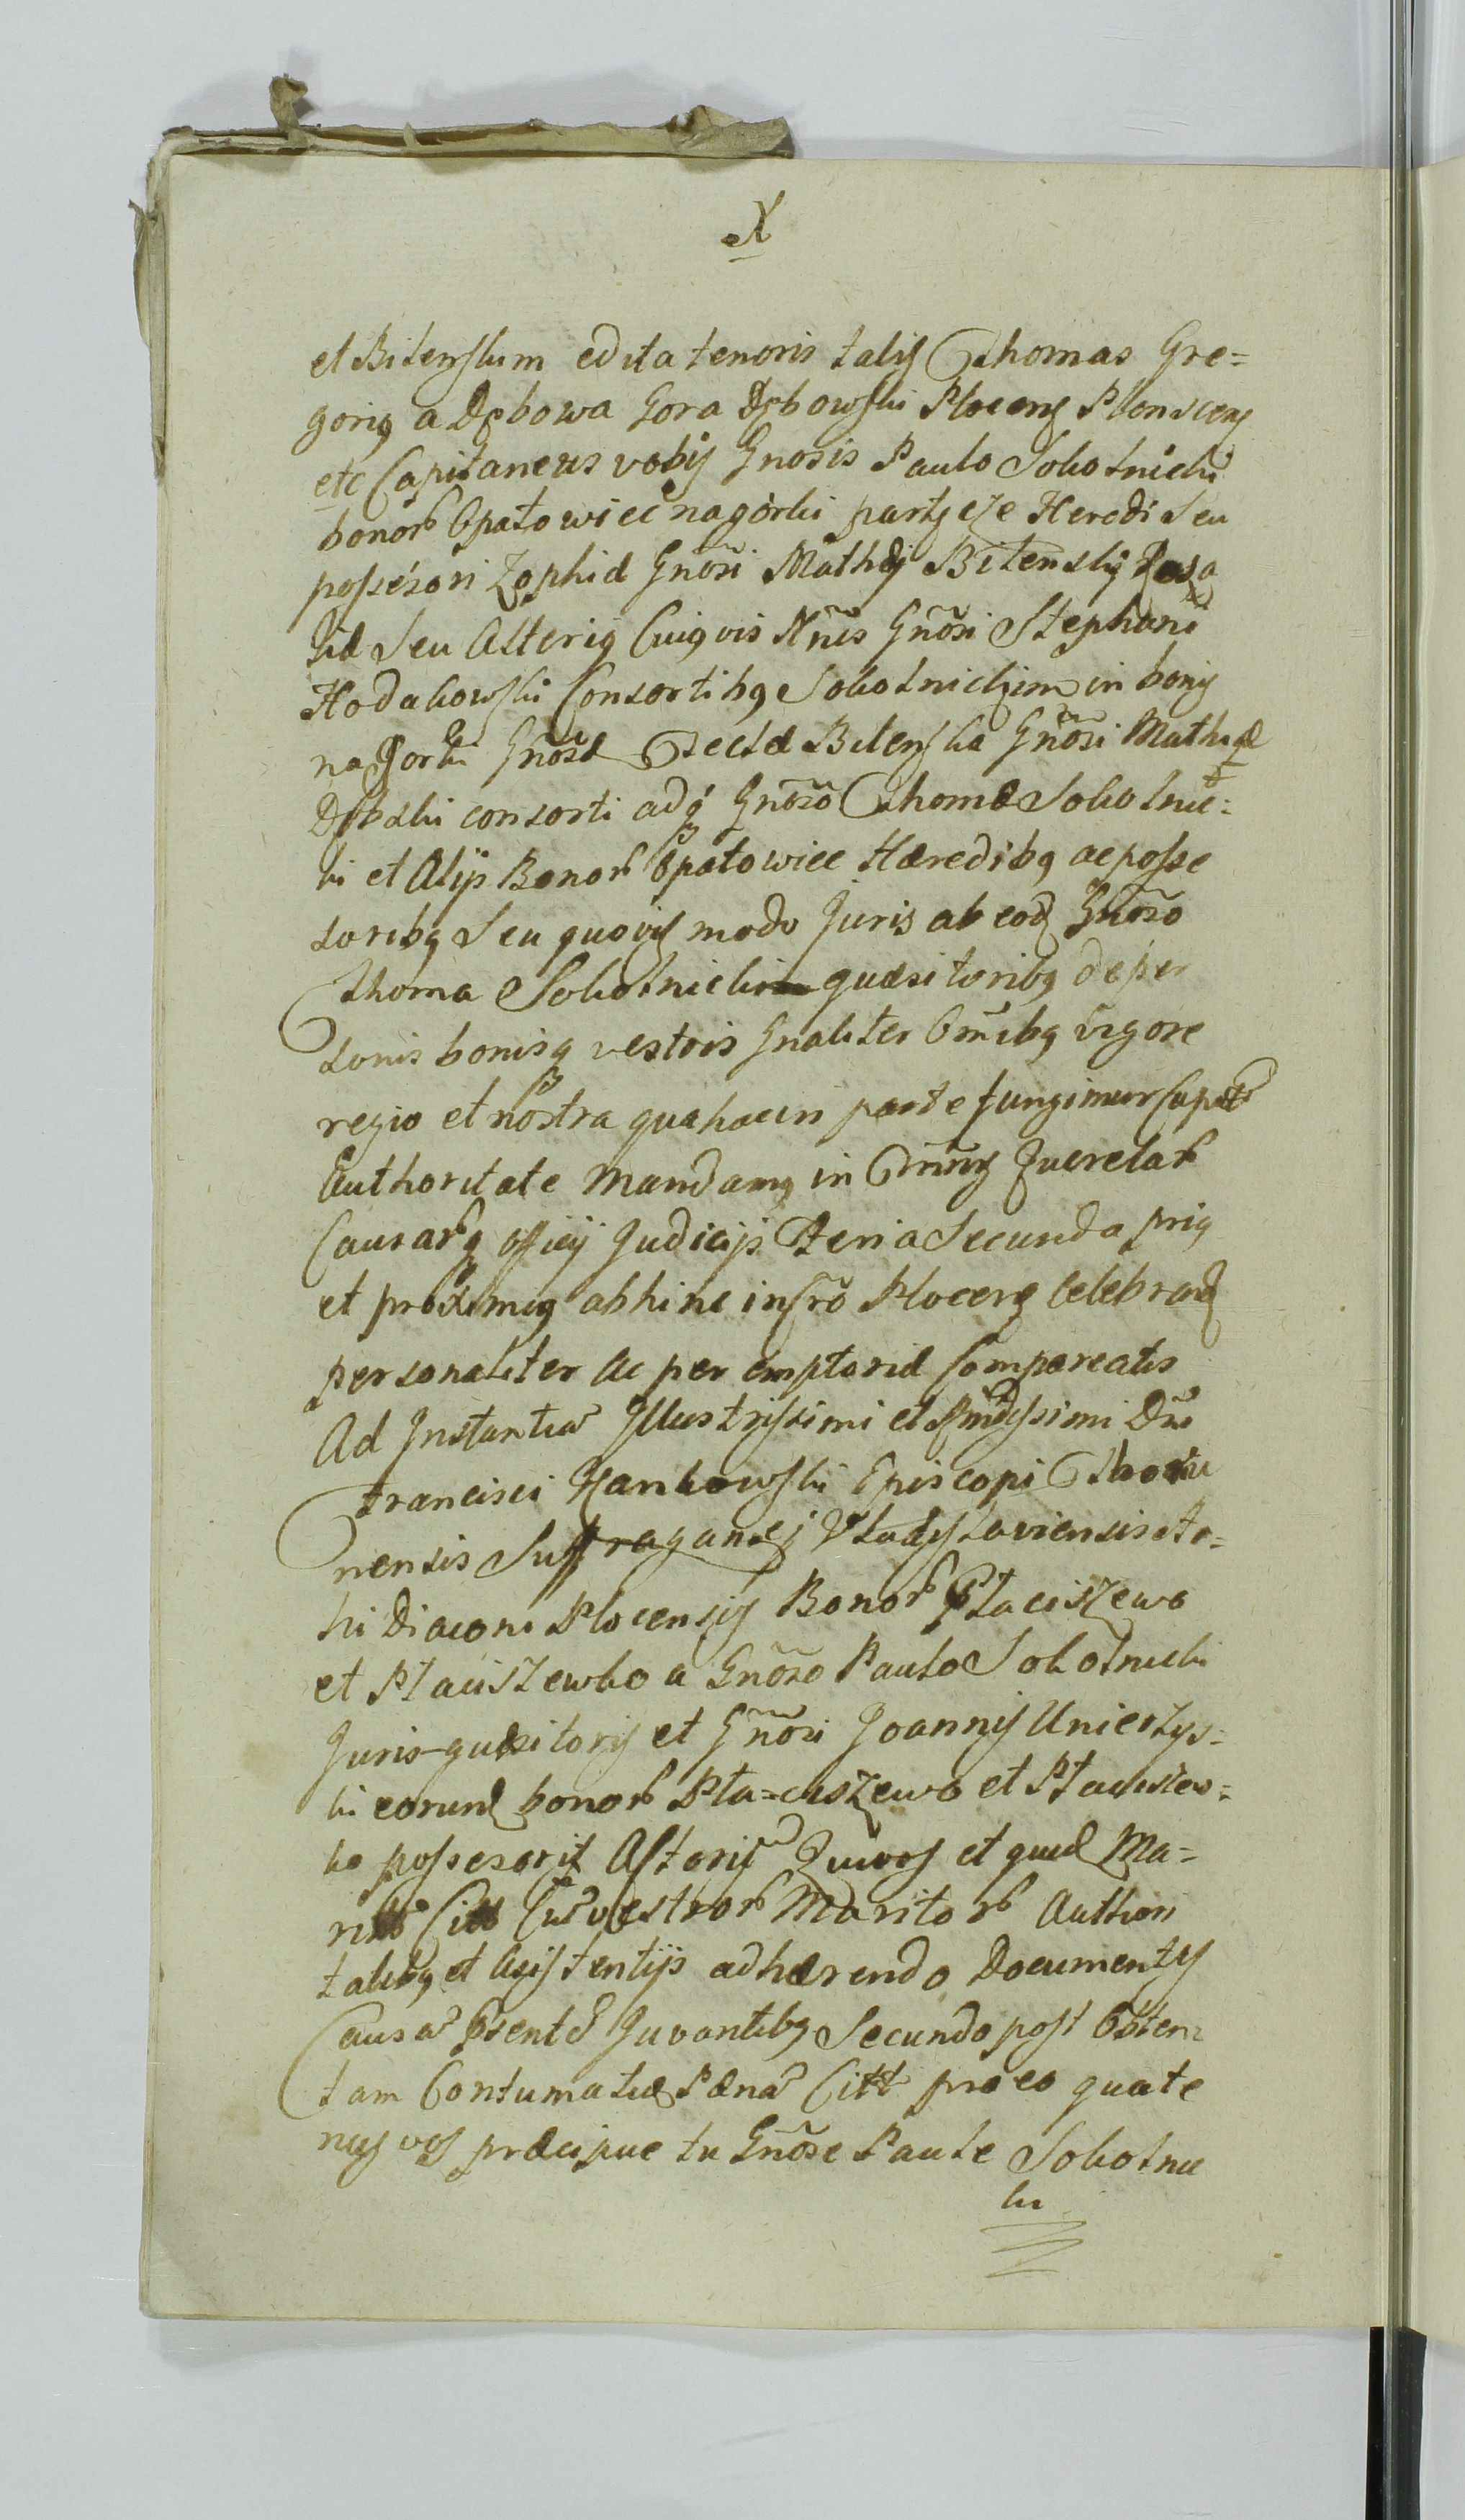 et Bitenskim edita tenoris talis Thomas Gre=
goriq a Dębowa Gora Dębowski Plocens Plonscens
etc Capitaneus vobis Gnosis Paulo Sokolnicki
bonor Opatowiec nagórki party cże Heredi seu
possesori Zophiæ Gnōsi Mathęj Bitenski Roza
liæ seu Alteriq Cuiqvis Nñis Gnōsi Stephani
Hodakowski Consortibq Sokolnickim in bonis
na Gorki Gnōsæ Teclæ Bitenska Gnōsi Mathiæ
Dębski consorti adq Gnōso Thomæ Sokolnic=
ki et Alijs Bonor Opatowiec Hæredibq ac posse
soribq seu quovis modo Juris ab eod Gnōso
Thoma Sokolnicki quæsitoribq de per
sonis bonisq vestris Gnaliter Omibq vigore
regio et nostra qua hac in parte fungimur Capit
Authoritate Mandamq in Querelar
Causarq officij Judicijs Feria Secunda priq
et proximeq abhinc in Cro Plocens celebrad
personaliter ac peremptoriæ Compareatis
Ad Instantia Illustrissimi et Rndissimi Dni
Francisci Kankowski Episcopi
nensis Suffraganej Vladyslaviensis Ar=
hi Diaconi Plocensis Bonor Płaciszewo
et Płaciszewko a Gnōso Paulo Sokolnicki
Juris quæsitoris et Gnōsi Joannis Unierzys=
ki eorund bonor Pła=ciszewo et Placiszew=
ko possesoris Actoris Qui vos et quid Ma=
ritor vestror Maritor Authori
talibq et Assistentijs adhærendo Documentis
Causa Psente Juvantibq Secundo post Obten
tam Contumatiæ Pæna Citt pro eo quate
nus vos præcipue tu Gnōse Paule Sokolnic
ki